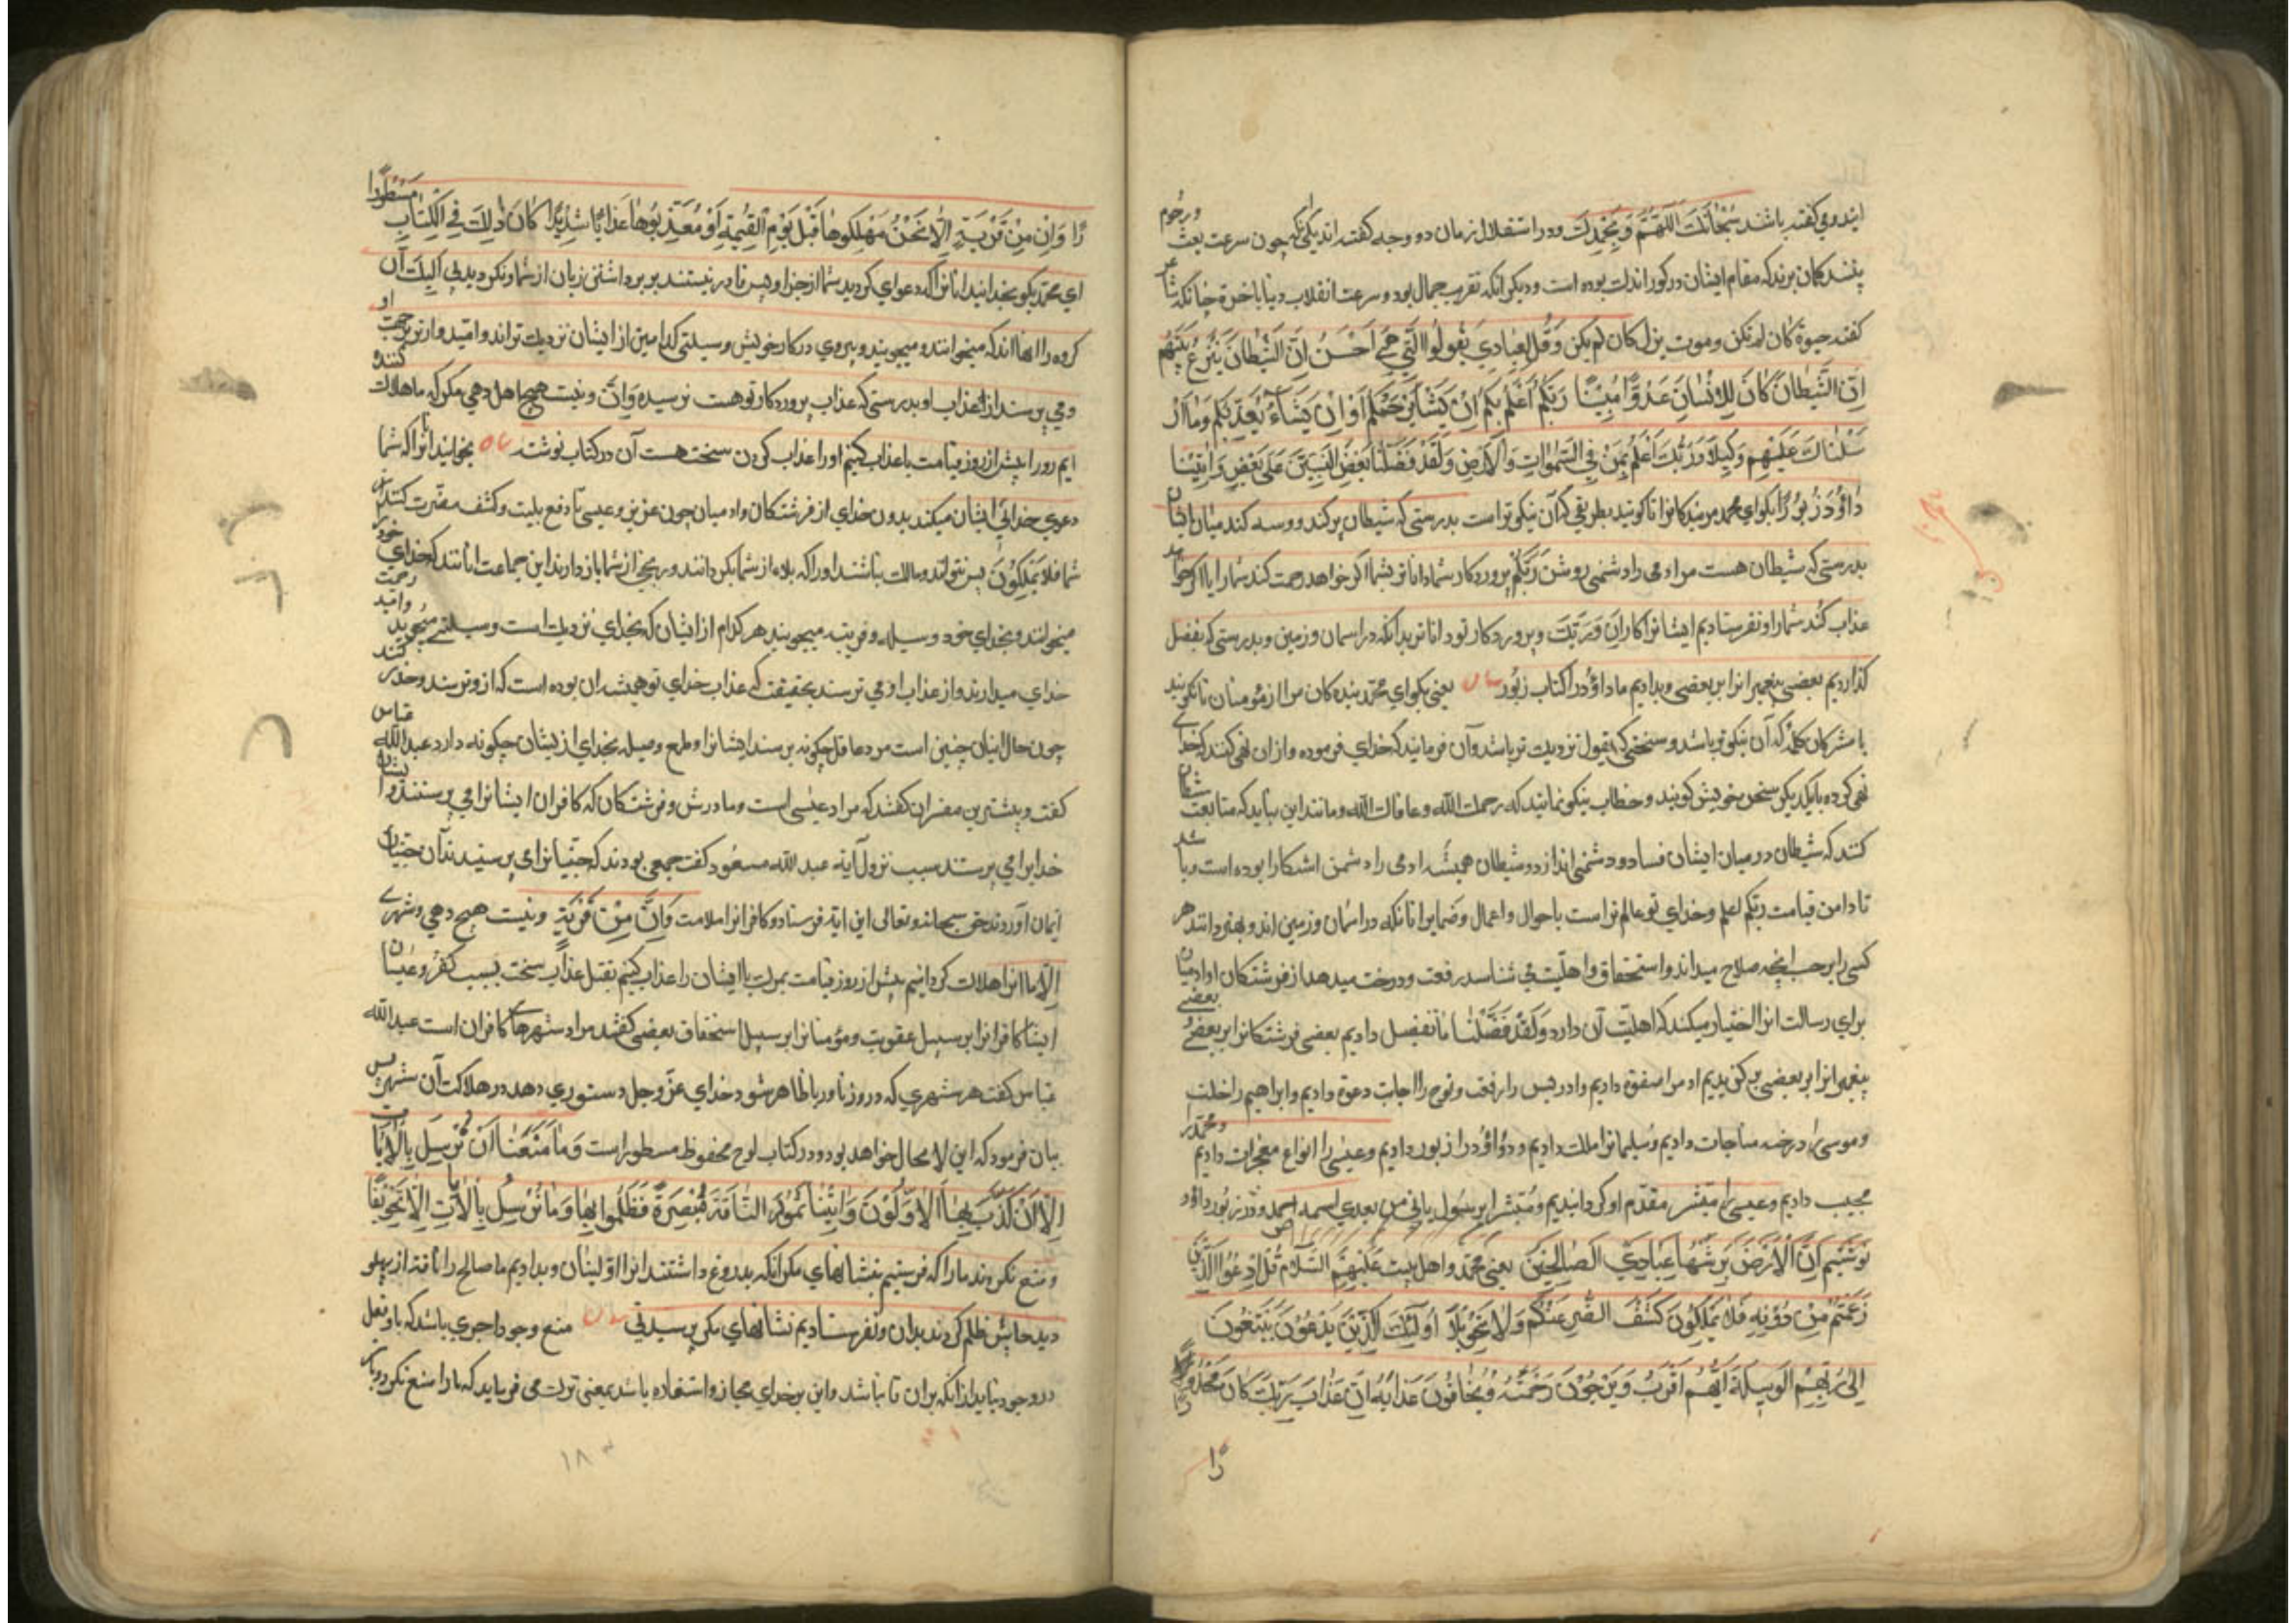 ایند و می گفته باشند سُبْحَانَكَ اللَّهُمَّ وَبِحَمْدِكَ و در استقلال زمان دو وجه گفته اند یکی آنکه چون سرعت بعث
بینند کمان برند که مقام ایشان در کور اندك بوده است و دیکر انکه تقریب جمال بود و سرعت انقلاب دنیا باخرة چنانکه
کفته حیوة کان لم تکن و موت یزل کان لم یکن وَقُل لِعِبَادِي يَقُولُوا الَّتِي هِيَ أَحْسَنُ اِنَّ الشَّيْطَانَ يَنْزَغُ بَيْنَهُمْ
اِنَّ الشَّيْطَانَ كَانَ لِلاِنْسَانِ عَدُوًّا مُبِينًا رَبُّكُمْ اَعْلَمُ بِكُمْ اِنْ يَشَأْ يَرْحَمْكُمْ اَوْ اِنْ يَشَاءْ يُعَذِّبْكُمْ وَمَا اَرْ
سَلْنَاكَ عَلَيْهِمْ وَكِيلًا وَرَبُّكَ اَعْلَمُ بِمَنْ فِي السَّمٰوَاتِ وَالْاَرْضِ وَلَقَدْ فَضَّلْنَا بَعْضَ النَّبِيِّينَ عَلَى بَعْضٍ وَاٰتَيْنَا
دَاوُدَ زَبُورًا بکو ای محمد مر بندکانرا تا کویند بطریقی که آن نیکوتر است بدرستی که شیطان بر کند و وسوسه کند میان ایشان
بدرستی که شیطان هست مر ادمی را دشمنی روشن رَبُّكُمْ پروردکار شما داناتر بشما اکر خواهد رحمت کند شما را یا اکر خواهد
عذاب کند شما را و نفرستادیم ایشانرا کاران وَرَبُّكَ و پروردکار تو داناتر بدانکه در اسمان و زمین و بدرستی که بفضل
کذاردیم بعضی پیغمبرانرا بر بعضی و بدادیم ما داوُد را کتاب زبُور یعنی بکو ای محمّد بنده کان مرا از مؤمنان تا بکویند
با مشرکان کلمه که آن نیکوتر باشد و سخنی که بقبول نزدیك تر باشد و آن فرمایند که خدای فرموده و ازان نهی کنند که خدا
نهی کرده با یکدیکر سخن بخویش کویند و خطاب نیکو نمایند که رحمك الله و عافاك الله و مانند این بباید که متابعت شیطان
کنند که شیطان در میان ایشان فساد و دشمنی اندازد و شیطان همیشه ادمی را دشمن اشکارا بوده است و باشد
تا دامن قیامت ربّکم اعلم و خدای تو عالم تر است باحوال و اعمال و ضمایر انانکه در اسمان و زمین اند و بهتر داند هر
کسی را بر حسب آنچه صلاح میداند و استحقاق و اهلیّت می شناسد رفعت و درجت میدهد از فرشتکان و ادمیان
برای رسالت انرا اختیار میکند که اهلیّت آن دارد وَلَقَدْ فَضَّلْنَا ما تفضیل دادیم بعضی فرشتکانرا بر بعضی
پیغمبرانرا بر بعضی بر کزیدیم ادمرا صفوة دادیم و ادریس را رفعت و نوح را اجابت دعوة دادیم و ابراهیم را خلت
و موسی را درجه مناجات دادیم و سلیمانرا ملك دادیم و داوُد را زبور دادیم و عیسی را انواع معجزات دادیم و محمّد را
دادیم و عیسی را مبشر مقدّم او کردانیدیم و مُبَشِّرًا بِرَسُولٍ یاتی من بعدی اسمه احمد و در زبور داوُد
نوشتیم اِنَّ الْاَرْضَ يَرِثُهَا عِبَادِيَ الصَّالِحِينَ یعنی محمّد و اهل بیت عَلَيْهِمُ السَّلَام قُلِ ادْعُوا الَّذِينَ
زَعَمْتُمْ مِنْ دُونِهِ فَلَا يَمْلِكُونَ كَشْفَ الضُّرِّ عَنْكُمْ وَلَا تَحْوِيلًا اُولٰئِكَ الَّذِينَ يَدْعُونَ يَبْتَغُونَ
اِلَى رَبِّهِمُ الْوَسِيلَةَ اَيُّهُمْ اَقْرَبُ وَيَرْجُونَ رَحْمَتَهُ وَيَخَافُونَ عَذَابَهُ اِنَّ عَذَابَ رَبِّكَ كَانَ مَحْذُورًا
رًا وَاِنْ مِنْ قَرْيَةٍ اِلَّا نَحْنُ مُهْلِكُوهَا قَبْلَ يَوْمِ الْقِيٰمَةِ اَوْ مُعَذِّبُوهَا عَذَابًا شَدِيدًا كَانَ ذٰلِكَ فِي الْكِتَابِ مَسْطُورًا
ای محمّد بکو بخوانید انانرا که دعوای کردید شما از جز او پس قادر نیستند بر برداشتن زیان از شما و نکردیدنی اُولٰئِكَ آن
کروه را انها اند که میخوانند و میجویند و پیروی درکار خویش وسیلتی کدامین از ایشان نزدیك تراند و امّید وارند برحمت او
و می ترسند از عذاب او بدرستی که عذاب پروردکار تو هست ترسیده وَاِنْ و نیست هیچ اهل دهی مکر که ما هلاك کننده
ایم او را پیش از روز قیامت یا عذاب کنیم او را عذاب کردن سخت هست آن در کتاب نوشته بخوانید انرا که شما
دعوی خدائی ایشان میکنید بدون خدای از فرشتکان و ادمیان چون عزیر و عیسی تا دفع بلیت و کشف مضرّت کنند از
شما فَلَا يَمْلِكُونَ پس نتوانند و مالك نباشند او را که بلاء از شما بکردانند و رنجی از شما باز دارند این جماعت انانند که خدای خود
میخوانند و بخدای خود وسیله و قربت میجویند هر کدام از ایشان که بخدای نزدیك است وسیلتی میجوید و امّید رحمت
خدای میدارند و از عذاب او می ترسند بحقیقت که عذاب خدای تو همیشه ان بوده است که ازو ترسند و حذر کنند
چون حال اینان چنین است مردم عاقل چکونه پرستد ایشانرا و طمع وصیله بخدای از ایشان چکونه دارد عبدالله عباس
کفت و بیشترین مفسّران کفتند که مراد عیسی است و مادرش و فرشتکان که کافران ایشانرا می پرستند و ایشان
خدایرا می پرستند سبب نزول آیه عبد الله مسعود کفت جمعی بودند که جنّیانرا می پرستیدند آن جنّیان
ایمان آوردند حق سبحانه و تعالی این ایة فرستاد و کافرانرا ملامت وَاِنْ مِنْ قَرْيَةٍ و نیست هیچ دهی و شهری
اِلَّا ما انرا هلاك کردانیم پیش از روز قیامت بمرك یا ایشان را عذاب کنیم بقتل عذاب سخت بسبب کفر و عصیان
ایشان کافرانرا بر سبیل عقوبت و مؤمنانرا بر سبیل استحقاق بعضی کفتند مراد شهرهای کافران است عبدالله
عباس کفت هر شهری که در و زنا و ربا ظاهر شود خدای عزّ و جل دستوری دهد در هلاکت آن شهر پس
بیان فرمود که این لا محال خواهد بود و در کتاب لوح محفوظ مسطور است وَمَا مَنَعَنَا اَنْ نُرْسِلَ بِالْاٰيَاتِ
اِلَّا اَنْ كَذَّبَ بِهَا الْاَوَّلُونَ وَاٰتَيْنَا ثَمُودَ النَّاقَةَ مُبْصِرَةً فَظَلَمُوا بِهَا وَمَا نُرْسِلُ بِالْاٰيَاتِ اِلَّا تَخْوِيفًا
و منع نکردند ما را که فرستیم بنشانهای مکر انکه بدروغ داشتند انرا اوّلینان و بدادیم ما صالح را ناقه از پهلو
دید جایش ظلم کردند بدان و نفرستادیم نشانهای مکر بترسیدنی منع وجود اجری باشد که با او فعل
در وجود نیاید از انکه بر ان تا نباشد و این بر خدای مجاز و استعاره باشد بمعنی ترك می فرماید که ما را منع نکرد و باز
رًا
۱۸۰